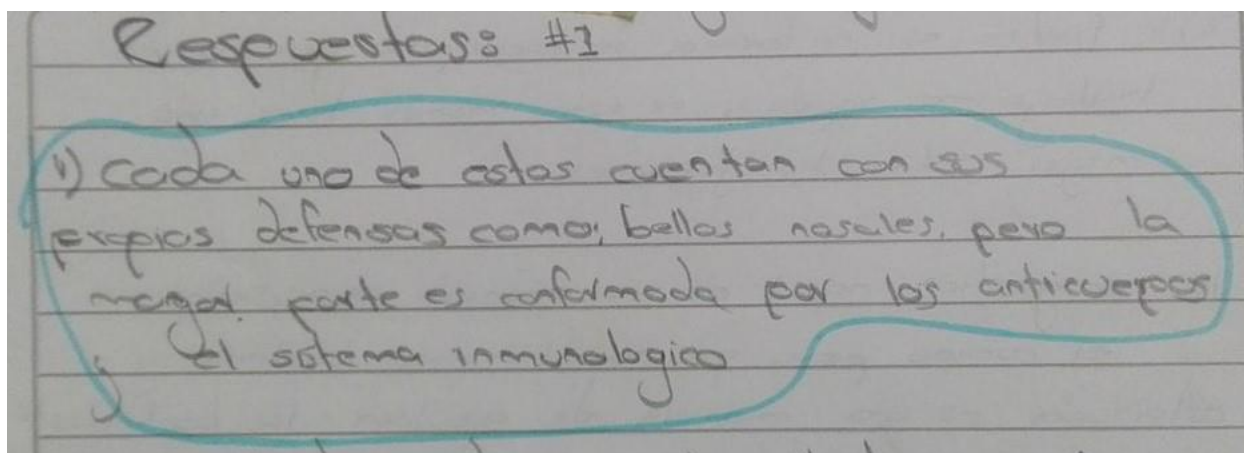 Respuestas: #1
1) Cada uno de estos cuentan con sus
propios defensas como; bellos nasales, pero la
mayor parte es conformada por los anticuerpos
y el sistema inmunologico